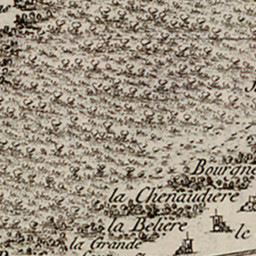 Bourgne
la Chenaudiere
la Beliere
le
la Grande